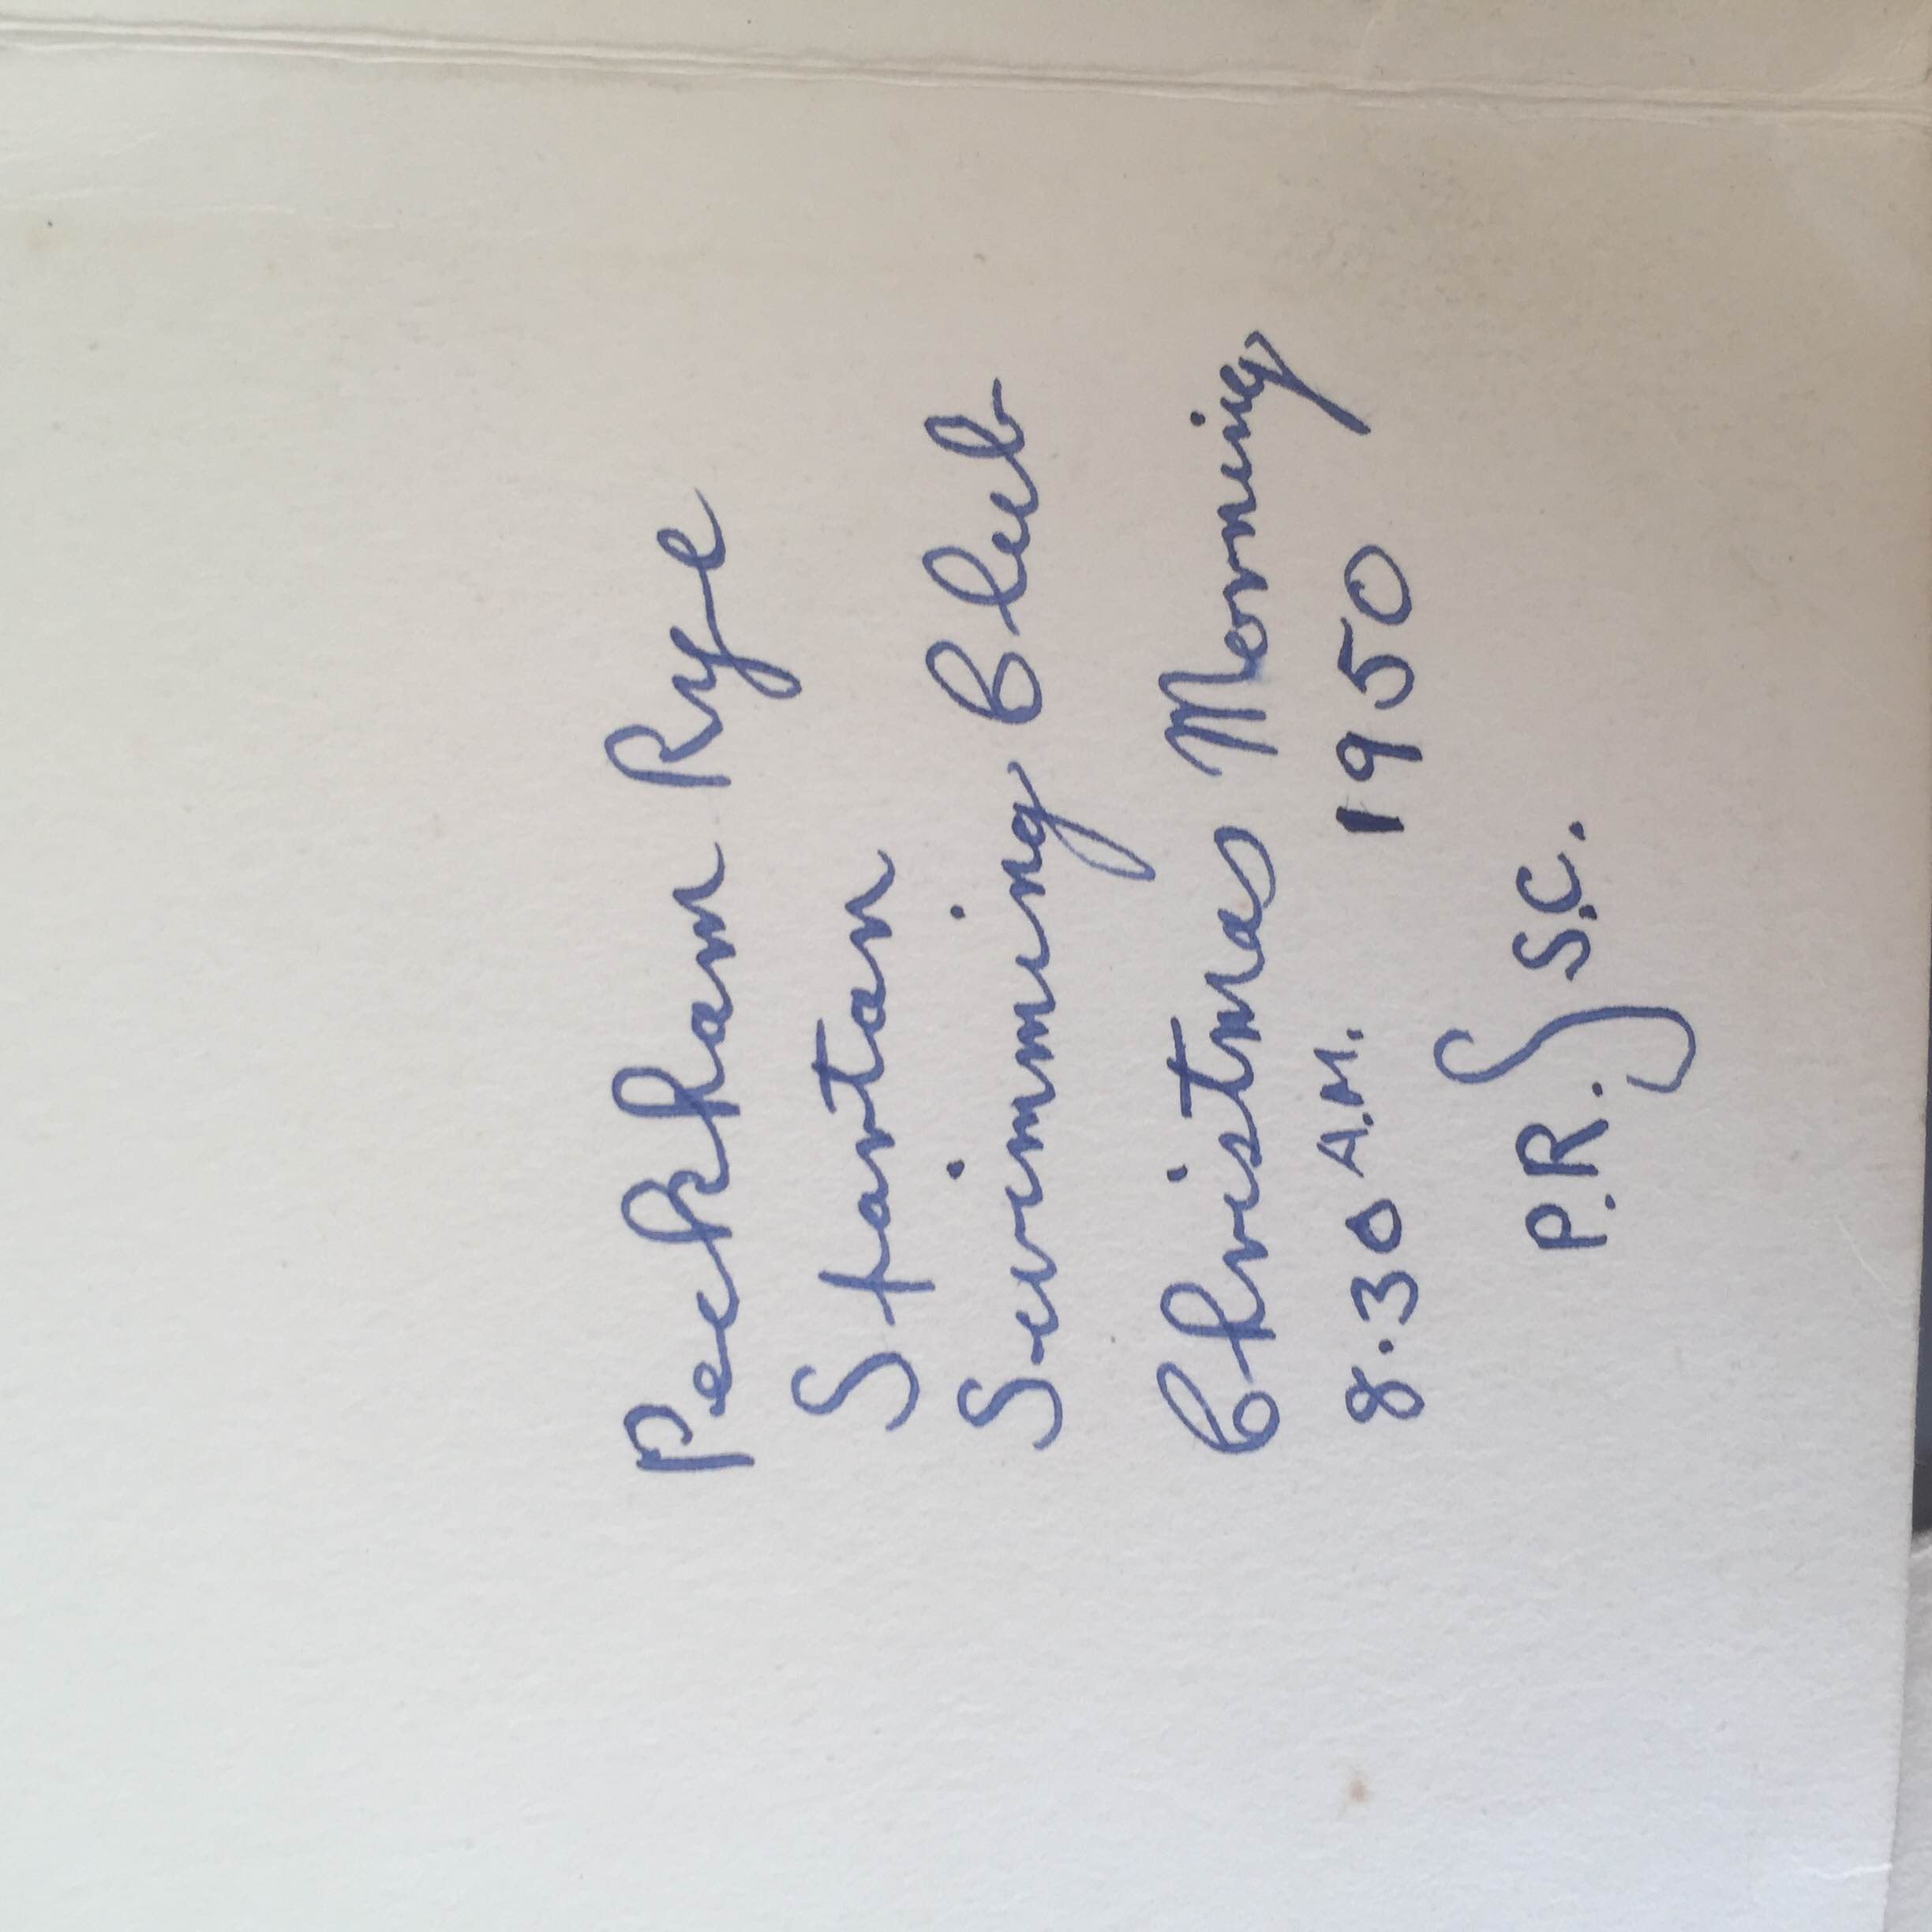 Peckham Rye
Spartan
Swimming Club
Christmas Morning
8.30 A.M. 1950
P.R.S S.C.